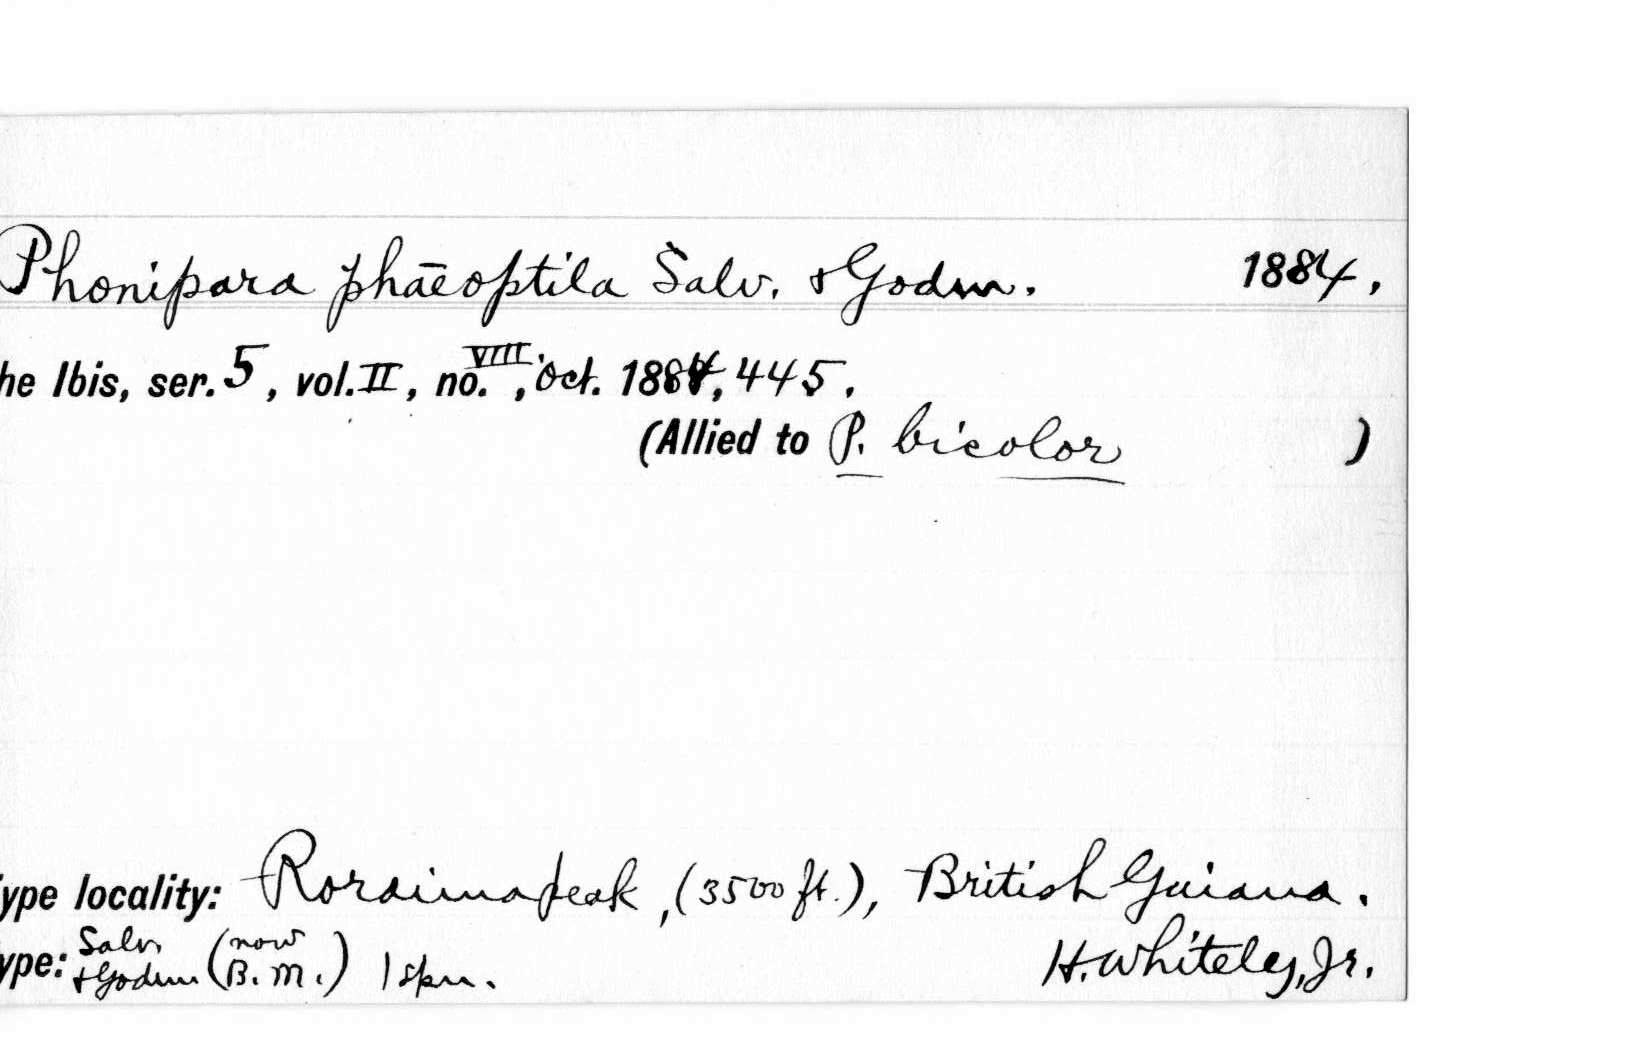 Phonipara phāeoptila Salv. & Godm. 1884.
he Ibis, ser. 5, vol. II, no. VIII, Oct. 1884, 445.
(Allied to P. bicolor )
ype locality: Roraima peak, (3500 ft.), British Guiana.
ype: Salv. & Godm (now B.M.) 1 spm. H. Whiteley, Jr.